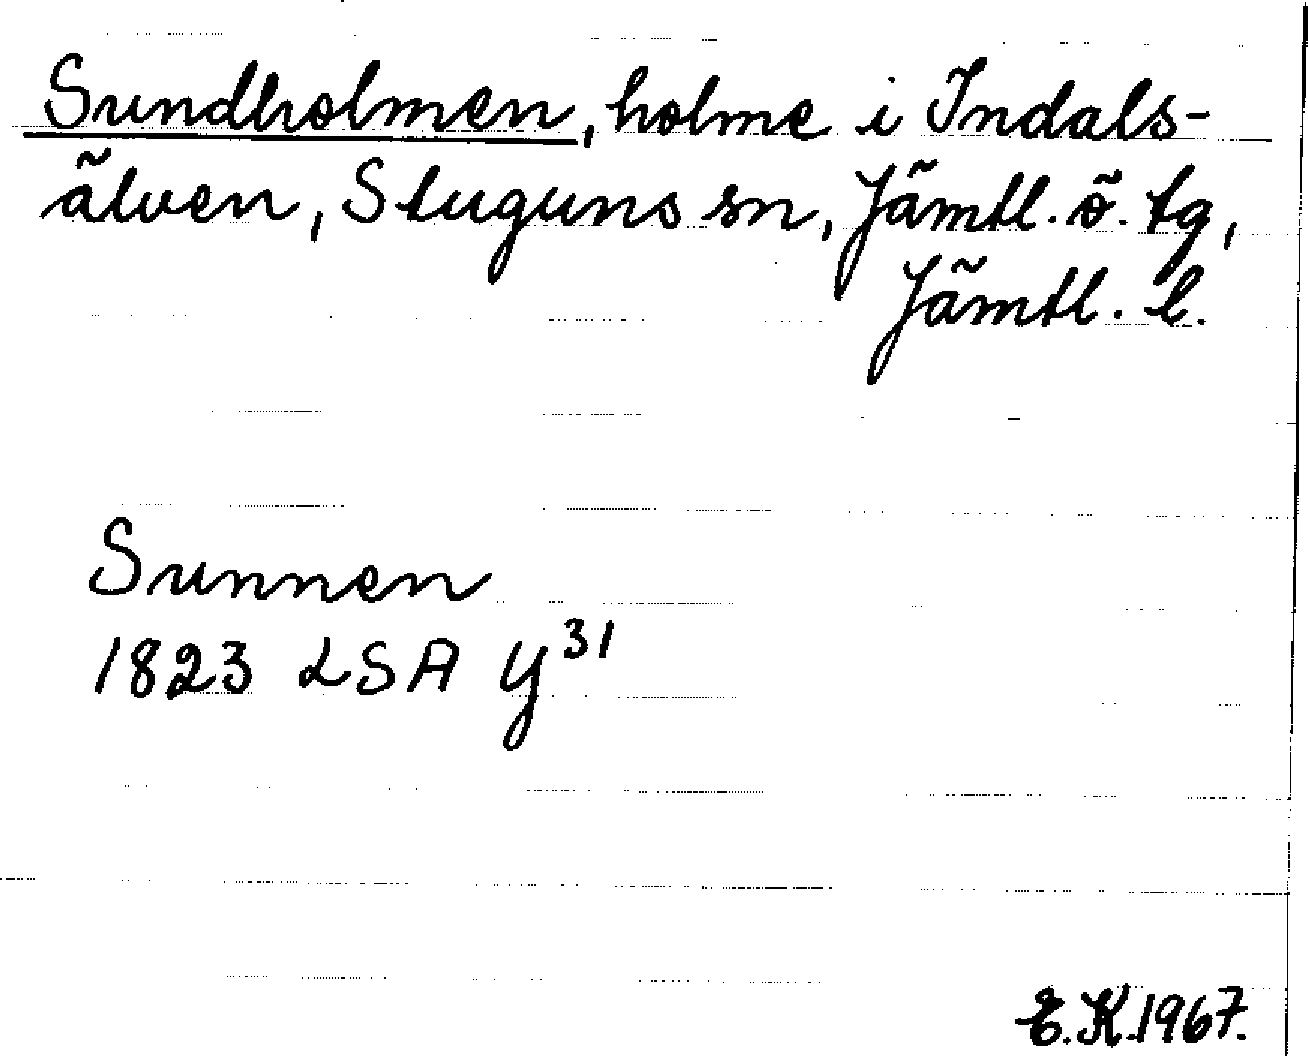 Sundholmen, holme i Indals-
älven, Stuguns sn, Jämtl. ö. tg,
Jämtl. l.
Sunnen
1823 LSA Y³¹
E.K. 1967.